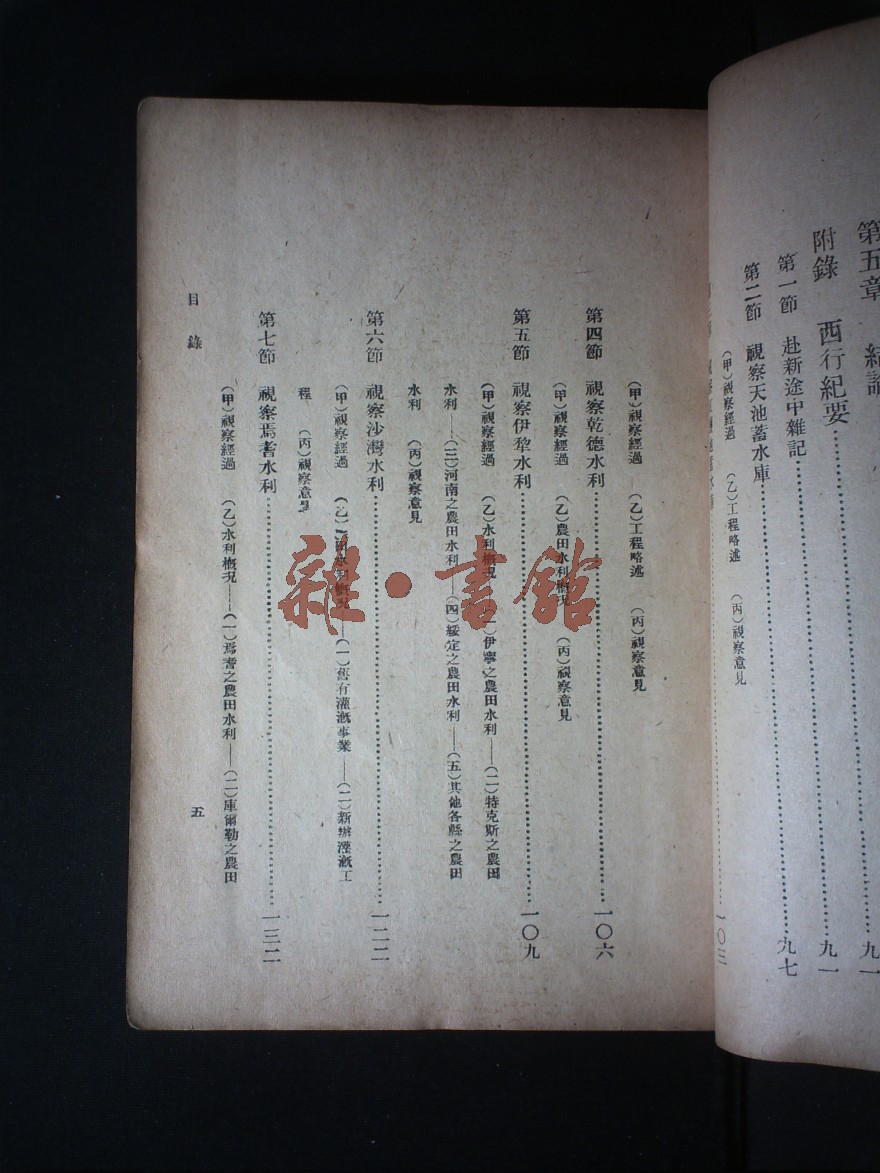 第五章 結論……九一
附錄 西行紀要……九一
第一節 赴新途中雜記……九七
第二節 視察天池蓄水庫
(甲)視察經過 (乙)工程略述 (丙)視察意見
……一〇三
(甲)視察經過 (乙)工程略述 (丙)視察意見
第四節 視察乾德水利……一〇六
(甲)視察經過 (乙)農田水利概況 (丙)視察意見
第五節 視察伊犂水利……一〇九
(甲)視察經過 (乙)水利概況——(一)伊寧之農田水利——(二)特克斯之農田
水利——(三)河南之農田水利——(四)綏定之農田水利——(五)其他各縣之農田
水利 (丙)視察意見
第六節 視察沙灣水利……一二二
(甲)視察經過 (乙)農田水利概況——(一)舊有灌漑事業——(二)新辦灌漑工
程 (丙)視察意見
第七節 視察焉耆水利……一三二
(甲)視察經過 (乙)水利概況——(一)焉耆之農田水利——(二)庫爾勒之農田
目錄 五
雜·書館